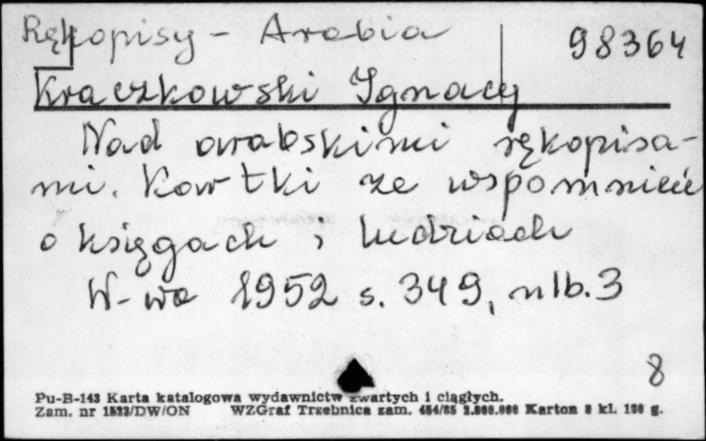 Rękopisy - Arabia 98364
Kraczkowski Ignacy
Nad arabskimi rękopisa-
mi. Kartki ze wspomnień
o księgach i ludziach
W-wa 1952 s. 349, nlb. 3
8
Pu-B-143 Karta katalogowa wydawnictw zwartych i ciągłych.
Zam. nr 1523/DW/ON WZGraf Trzebnica zam. 454/85 2.000.000 Karton 8 kl. 150 g.